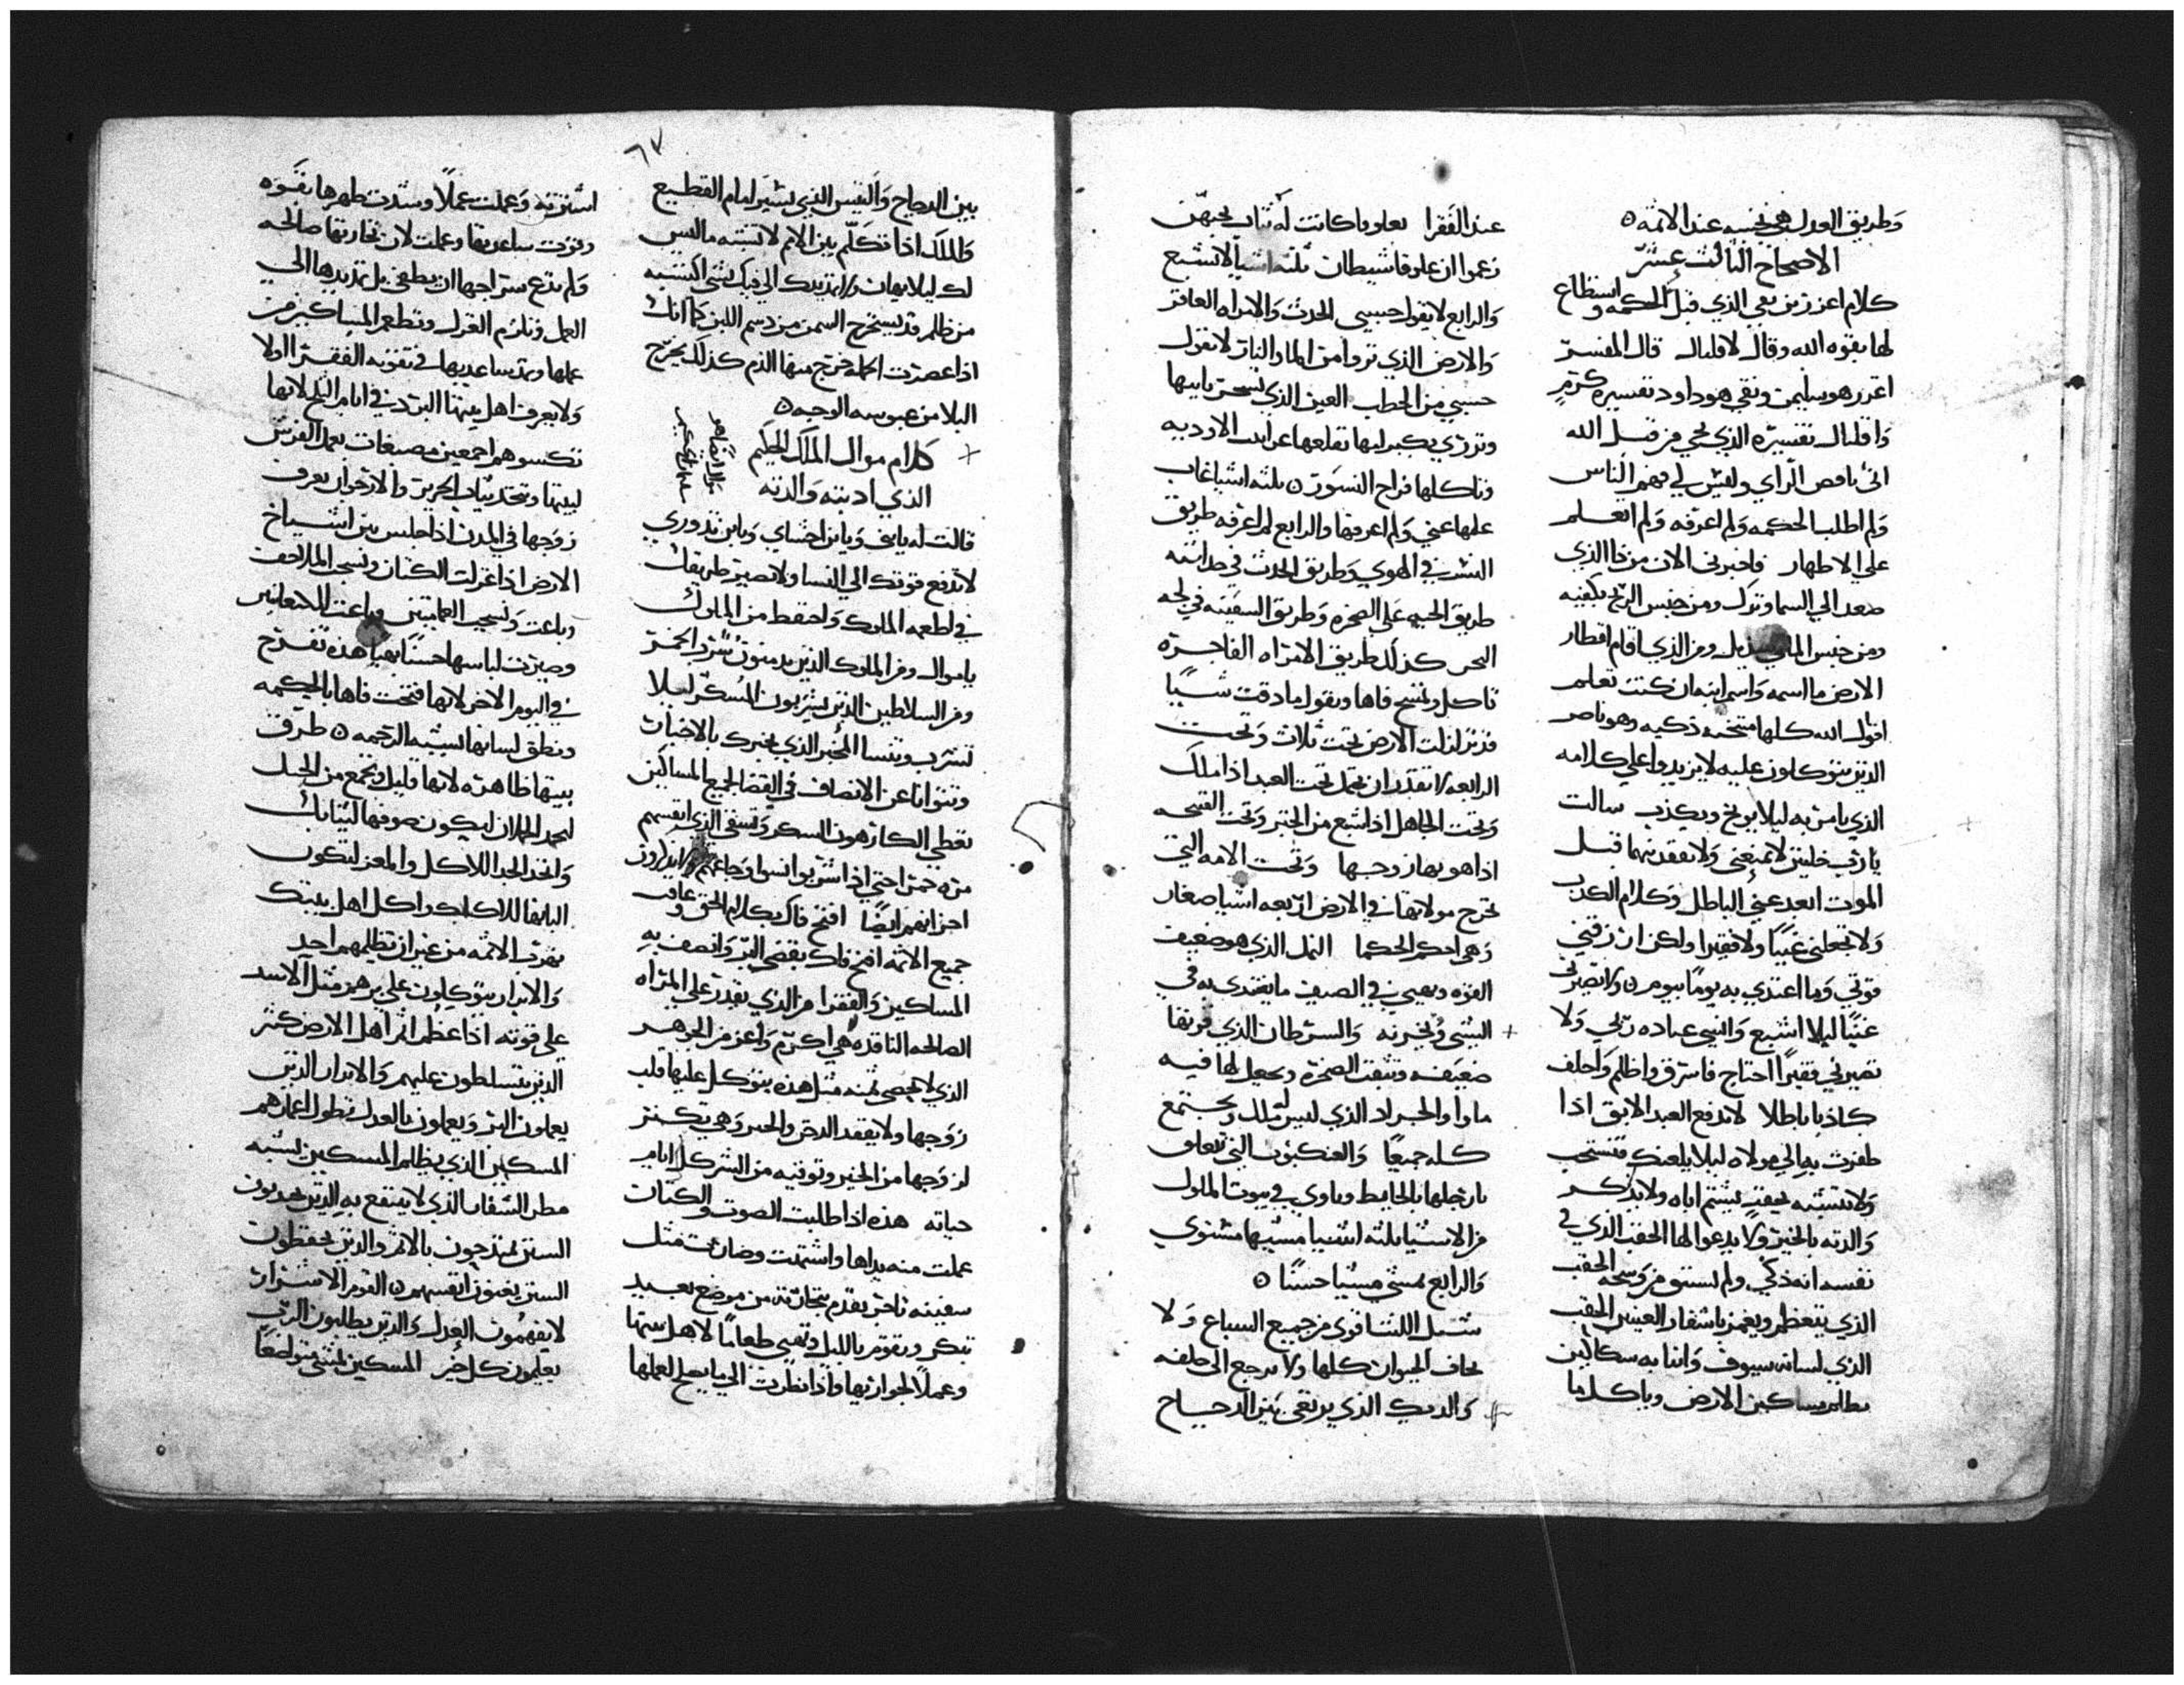 وطريق العدل هي نجسه عند الاثمه
الاصحاح الثالث عشر
كلام اعزر بن نقي الذي قبل الحكمه واستطاع
لها بقوه الله وقال لاقليال قال المفسر
اعزر هو سليمن ونقي هو داود تفسيره كرم
واقليال تفسيره الذي نجي من قبل الله
اني ناقص الراي وليس لي فهم الناس
ولم اطلب الحكمه ولم اعرفه ولم اتعلم
علي الاطهار فاخبرني الان من ذا الذي
صعد الي السما ونزل ومن حبس الريح بكفيه
ومن حبس الما في منديل ومن الذي اقام اقطار
الارض ما اسمه واسم ابنه ان كنت تعلم
اقوال الله كلها ممتحنه ذكيه وهو ناصر
الذين يتوكلون عليه لا يزيدوا علي كلامه
الذي يامر به ليلا يوبخ ويكذب سالت
يارب خلتين لا تمنعني ولا تفقدنيهما قبل
الموت ابعد عني الباطل وكلام الكذب
ولا تجعلني غنيًا ولا فقيرا ولكن ارزقني
قوتي وما اغتذي به يومًا بيوم ولا تصيرني
غنيًا ليلا اشبع وانسي عباده ربي ولا
تصيرني فقيرًا احتاج فاسرق واظلم واحلف
كاذبا باطلا لا تدفع العبد الابق اذا
ظفرت به الي مولاه ليلا يلعنك فتستحي
ولا تتشبه بحقب يشتم اباه ولا يذكر
والدته بالخير ولا يدعوا لها الحقب الذي في
نفسه انه ذكي ولم يستنق من وسخه الحقب
الذي يتعظم ويغمز باشفار العينين الحقب
الذي لسانه سيوف وانيابه سكاكين
يظلم مساكين الارض وياكل ما
عند الفقرا بعلوقا كانت له ثلث يحبهن
زعموا ان علوقا شيطان ثلثه اشيا لا تشبع
والرابع لا يقول حسبي الحدث والامراه العاقر
والارض الذي تروا من الما والنار لا تقول
حسبي من الحطب العين الذي تسخر بابيها
وتزري بكبر ابيها تقلعها غرابيب الاوديه
وتاكلها فراخ النسور ثلثه اشيا غاب
علمها عني ولم اعرفها والرابع لم اعرفه طريق
النسر في الهوي وطريق الحدث في حداثته
طريق الحيه علي الصخره وطريق السفينه في لجه
البحر كذلك طريق الامراه الفاجره
تاكل وتمسح فاها وتقول ما دقت شيًا
قد تزلزلت الارض تحت ثلاث وتحت
الرابعه لا تقدر ان تحمل تحت العبد اذا ملك
وتحت الجاهل اذا شبع من الخبز وتحت القبيحه
اذا هو بها زوجها وتحت الامه التي
تخرج مولاتها في الارض اربعه اشيا صغار
وهي احكم الحكما النمل الذي هو ضعيف
القوه ويعبي في الصيف ما يغتدي به في
الشتي ويخزنه والسرطان الذي فرقها
ضعيفه وتثقب الصخره ويجعل لها فيه
ماوا والجراد الذي ليس له ملك ويجتمع
كله جميعًا والعنكبوت التي تتعلق
بارجلها بالحايط وتاوي في بيوت الملوك
من الاشيا ثلثه اشيا مشيها مستوي
والرابع تمشي مشيا حسنًا
شبل الليث اقوي من جميع السباع ولا
يخاف الحيوان كلها ولا يرجع الي خلفه
والديك الذي يرتقي بين الدجاج
٦٧
بين الدجاج والتيس الذي يسير امام القطيع
والملك اذا تكلم بين الامم لا تشته ما ليس
لك ليلا تهان ولا تمد يدك الي فيك بشي اكتسبته
من ظلم قد يستخرج السمن من دسم اللبن كما انك
اذا عصرت اكمله خرج منها الدم كذلك يخرج
البلا من عبوسه الوجيه
كلام موال الملك الحكيم
الذي ادبته والدته
قالت له يا بني ويا بن احشاي ويا بن نذوري
لا تدفع قوتك الي النسا ولا تصير طريقك
في اطعمه الملوك واحتفظ من الملوك
يا موال ومن الملوك الذين يدمنون شرب الخمر
ومن السلاطين الذين يشربون المسكر ليلا
تشرب وتنسا المخبر الذي يخبرك بالاخبار
وتتوانا عن الانصاف في القضا لجميع المساكين
تعطي الكارهون السكر وتسقي الذي انفسهم
مره خمرا حتي اذا شربوا نسوا اوجاعهم ولا يذكرون
احزانهم ايضًا افتح فاك بكلام الحق وعاقب
جميع الاثمه افتح فاك بقضي البر وانصف به
المساكين والفقرا من الذي يقدر علي المراه
الصالحه الناقده هي اكرم واعز من الجوهر
الذي لا يحصي ثمنه مثل هذه يتوكل عليها قلب
زوجها ولا يفقد الدخر والخير وهي تكتنز
لزوجها من الخير وتوقيه من الشر كل ايام
حياته هذه اذا طلبت الصوف والكتان
عملت منه بيداها واشتملت وصارت مثل
سفينه تاجر يقدم بتجارته من موضع بعيد
تبكر وتقوم بالليل وتعبي طعامًا لاهل بيتها
وعملًا لجوارييها واذا نظرت الي ما يصلح لعملها
اشترته وعملت عملًا وشدت ظهرها بقوه
وعزت ساعديها وعملت لان تجارتها صالحه
ولم تدع سراجها ان يطفي بل تمد يديها الي
العمل وتلزم الغزل وتطعم المساكين من
عملها وتمد ساعديها في تقويه الفقرا اولا
ولا يعرف اهل بيتها البرد في ايام الثلج لانها
تكسوهم اجمعين مصبغات بعمل الفرش
لبيتها وتتخذ ثياب الحرير والارجوان يعرف
زوجها في المدن اذا جلس بين اشياخ
الارض اذا غزلت الكتان ونسجت الملاحف
وباعت ونسجت العمايتين وباعت للكنعانيين
وصيرت لباسها حسنًا بهيا هذه تفرح
في اليوم الاخر لانها فتحت فاها بالحكمه
ومنطق لسانها يشبه الرحمه طرق
بيتها ظاهره لانها قليل وتجمع من الجبل
لتجد الحملان ليكون صوفها لثيابك
واتخذ الجدا للاكل والمعز لتكون
البانها للاكلك واكل اهل بيتك
يهرب الاثمه من غير ان يظلمهم احد
والابرار يتوكلون علي برهم مثل الاسد
علي قوته اذا عظم اثم اهل الارض كثر
الذين يتسلطون عليهم والابرار الذين
يعملون البر ويعملون بالعدل تطول اعمارهم
المسكين الذي يظلم المسكين يشبه
مطر الشقاب الذي لا ينتفع به الذين يجدبون
السنن يمتدحون بالاثم والذين يحفظون
السنن يعينون انفسهم القوم الاشرار
لا يفهمون العدل والذين يطلبون الرب
يعلمون كل خير المسكين يمشي متواضعًا